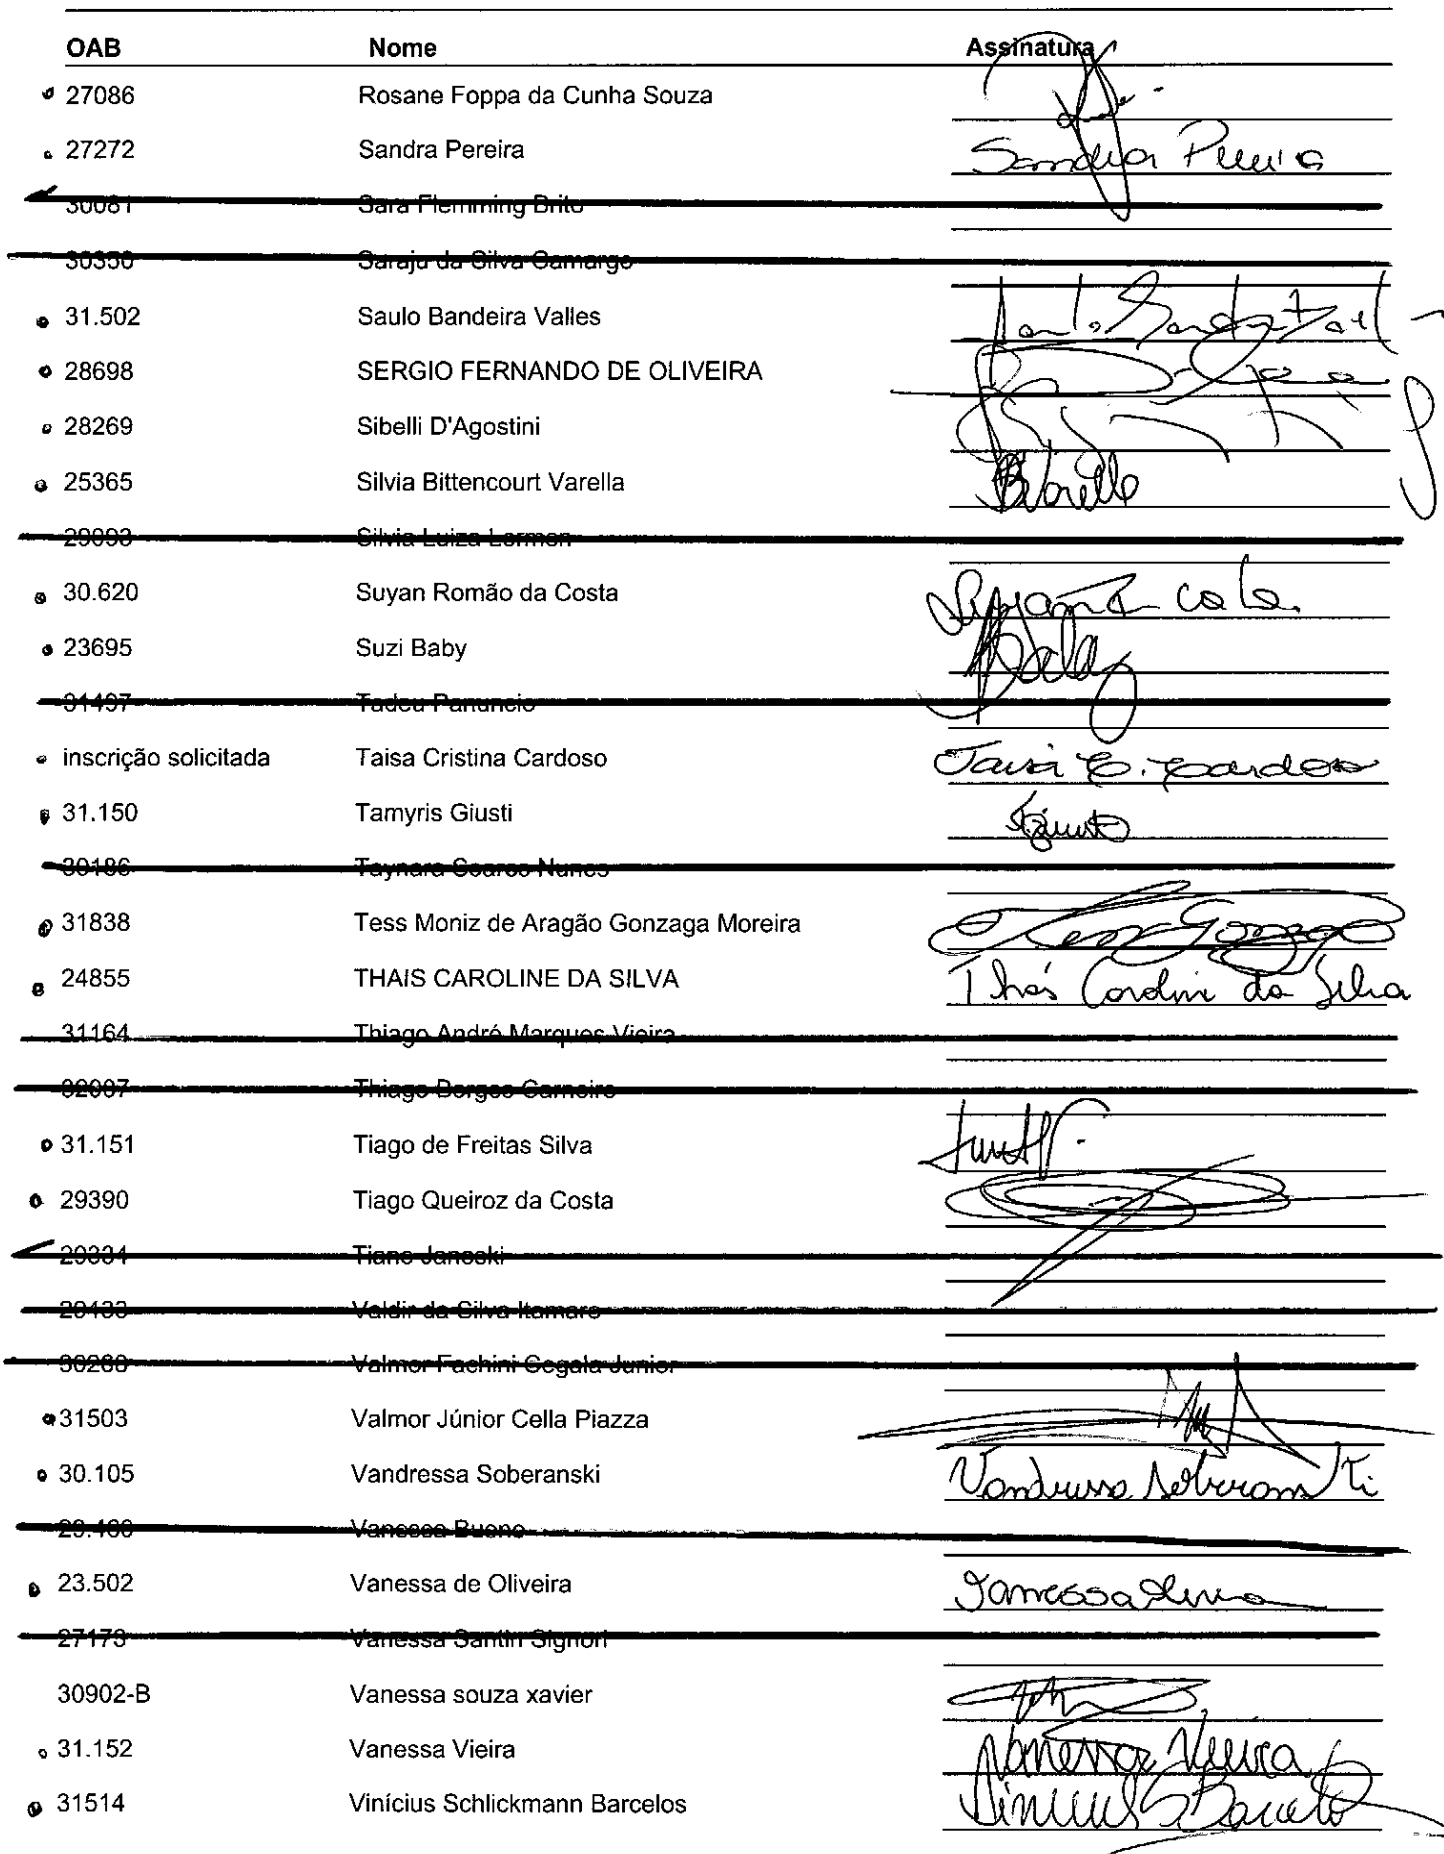 OAB Nome Assinatura
27086 Rosane Foppa da Cunha Souza
27272 Sandra Pereira Sandra Pereira
30081 Sara Flemming Brito
30350 Saraju da Silva Camargo
31.502 Saulo Bandeira Valles
28698 SERGIO FERNANDO DE OLIVEIRA
28269 Sibelli D'Agostini
25365 Silvia Bittencourt Varella
29093 Silvia Luiza Lermen
30.620 Suyan Romão da Costa
23695 Suzi Baby Baby
31497 Tadeu Panuncio
inscrição solicitada Taisa Cristina Cardoso Taisa C. Cardoso
31.150 Tamyris Giusti
30186 Taynara Soares Nunes
31838 Tess Moniz de Aragão Gonzaga Moreira Tess Gonzaga
24855 THAIS CAROLINE DA SILVA Thaís Caroline da Silva
31164 Thiago André Marques Vieira
Thiago Borges Carneiro
31.151 Tiago de Freitas Silva
29390 Tiago Queiroz da Costa
Tiano Janoski
Valdir da Silva Itamaro
Valmor Fachini Cegala Junior
31503 Valmor Júnior Cella Piazza
30.105 Vandressa Soberanski Vandressa Soberanski
Vanessa Bueno
23.502 Vanessa de Oliveira
27173 Vanessa Santin Signori
30902-B Vanessa souza xavier
31.152 Vanessa Vieira Vanessa Vieira
31514 Vinícius Schlickmann Barcelos